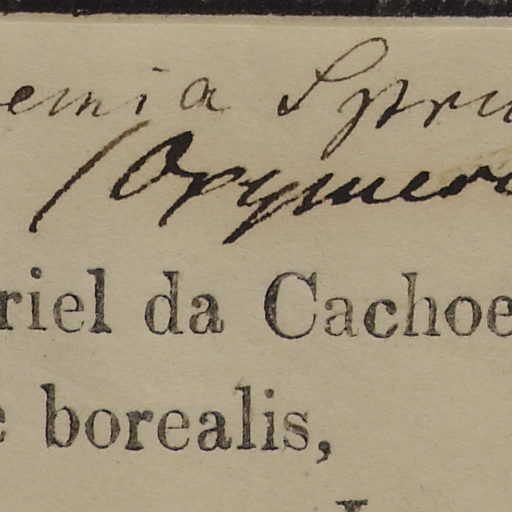 emia Spru
(Oxymero
riel da Cachoe
e borealis,